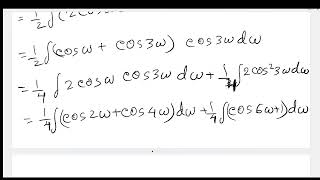 = 1/2 ∫(2cos
= 1/2 ∫(cosω + cos3ω) cos3ωdω
= 1/4 ∫ 2cosω cos3ω dω + 1/4 ∫ 2cos²3ωdω
= 1/4 ∫(cos2ω+cos4ω)dω + 1/4 ∫(cos6ω+1)dω